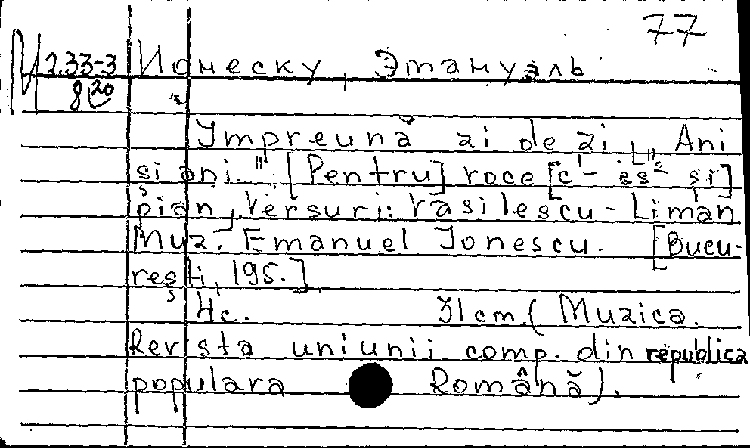 77
М 2.33-3 Ионеску, Эмануэль
8 20
Împreună zi de zi [„Ani
și ani..." [Pentru] voce [c¹ - is² și]
pian, Versuri: Vasilescu-Liman
Muz. Emanuel Ionescu. [Bucu-
rești, 195.]
4c. 31cm. (Muzica.
Revista uniunii comp. din republica
populara Română).